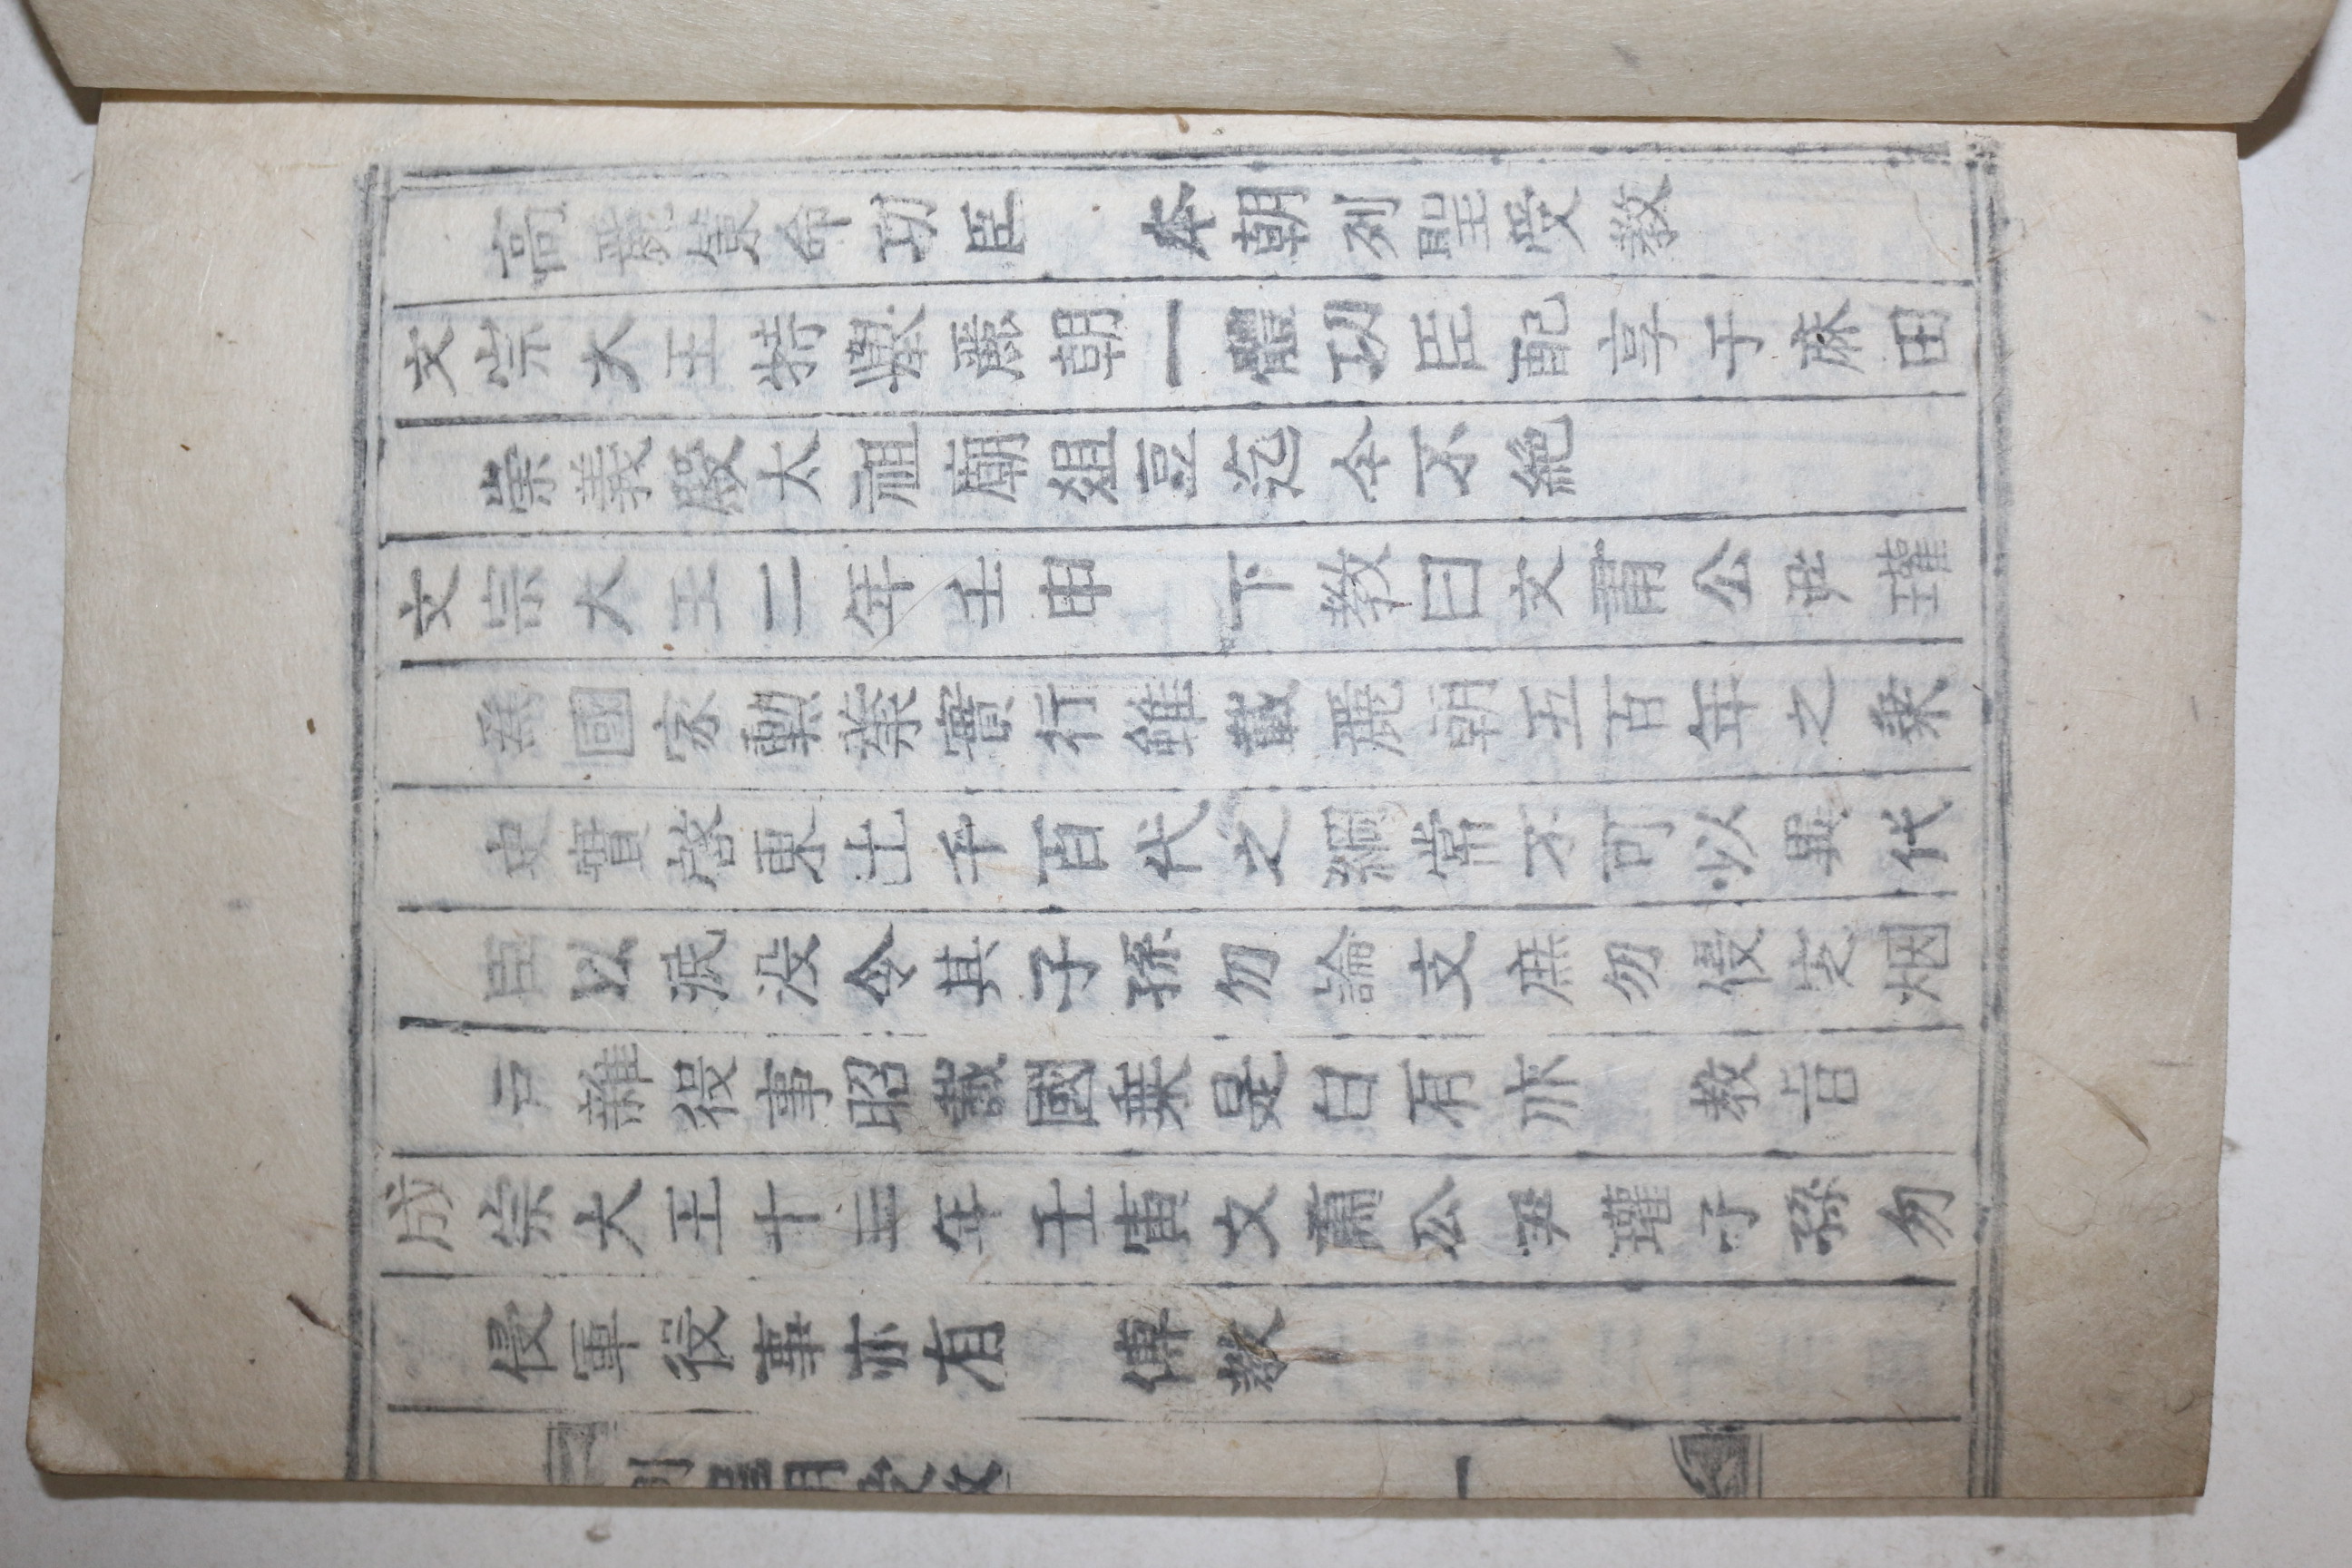 高麗策命功臣 本朝列聖受教
文宗大王特擧麗朝一體功臣配享于麻田
崇義殿太祖廟俎豆迄今不絶
文宗大王二年壬申 下教曰文肅公尹瓘
爲國家勳業實行雖載麗朝五百年之乗
史實啓東土千百代之綱常不可以異代
臣以泯没令其子孫勿論支庶勿侵定烟
戸雜役事昭載國乗是白有亦 教旨
成宗大王十三年壬寅文肅公尹瓘子孫勿
侵軍役事亦有 傳教
列聖朝受教 一